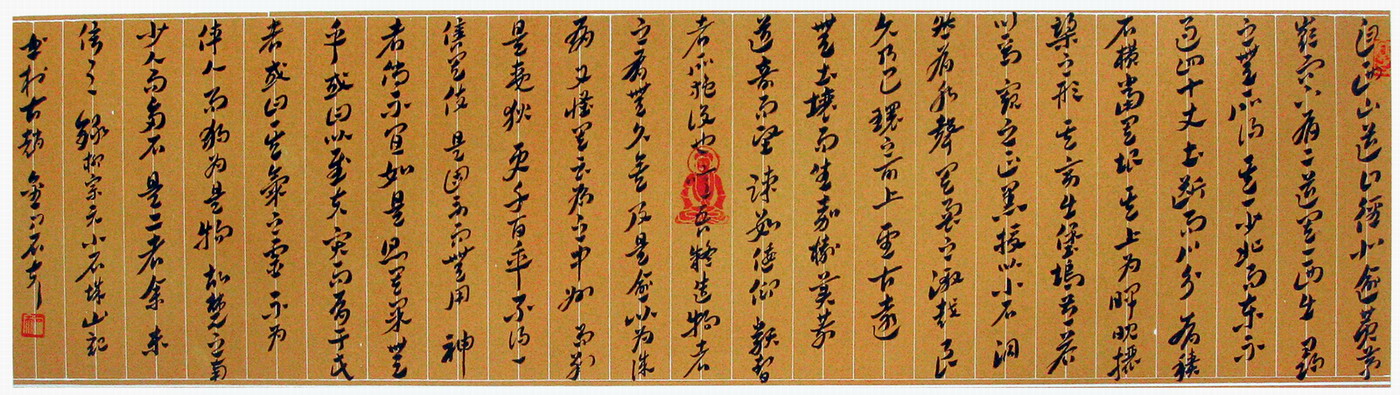 自西山道口径北逾黄茅
岭而下有二道其一西出寻
之无所得其一少北而东不
过四十丈土断而川分有积
石横当其垠其上为睥睨
梁之形其旁出堡坞有若
门焉窥之正黑投以小石洞
然有水声其响之激越良
久乃已环之可上望甚远
无土壤而生嘉树美箭
益奇而坚疏数偃仰类智
者所施设也噫吾疑造物者
之有无久矣及是愈以为诚
有又怪其不为之中州而列
是夷狄更千百年不得一
售其伎是固劳而无用神
者傥不宜如是则其果无
乎或曰以慰夫贤而辱于此
者或曰其气之灵不为
伟人而独为是物故楚之南
少人而多石是二者余未
信之 录柳宗元小石城山记
书于古赵